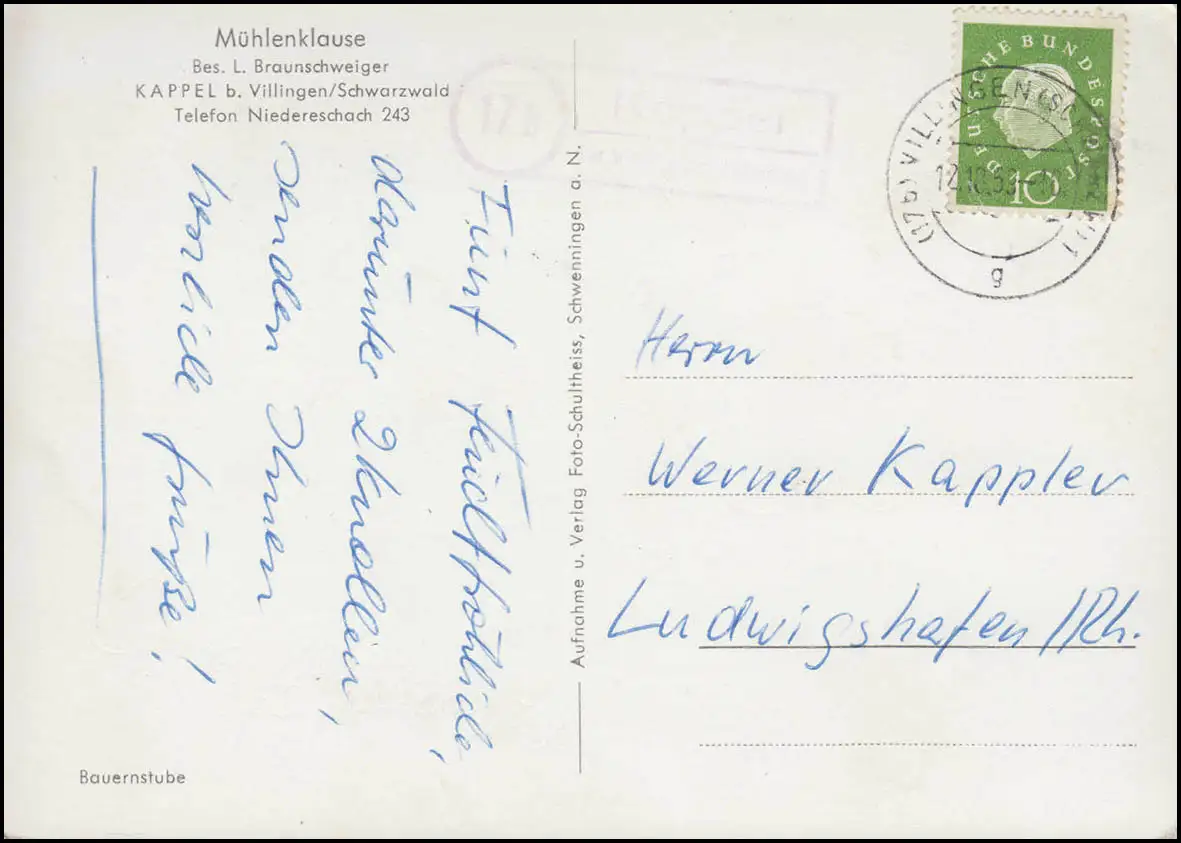 Mühlenklause
Bes. L. Braunschweiger
KAPPEL b. Villingen/Schwarzwald
Telefon Niedereschach 243
Fünf
darunter 2
senden Ihnen
herzliche Grüße!
Bauernstube
Aufnahme u. Verlag Foto-Schultheiss, Schwenningen a. N.
17b
DEUTSCHE BUNDESPOST
10
(17b) VILLINGEN (SCHWARZW)
12.10.59
g
Herrn
Werner Kappler
Ludwigshafen/Rh.